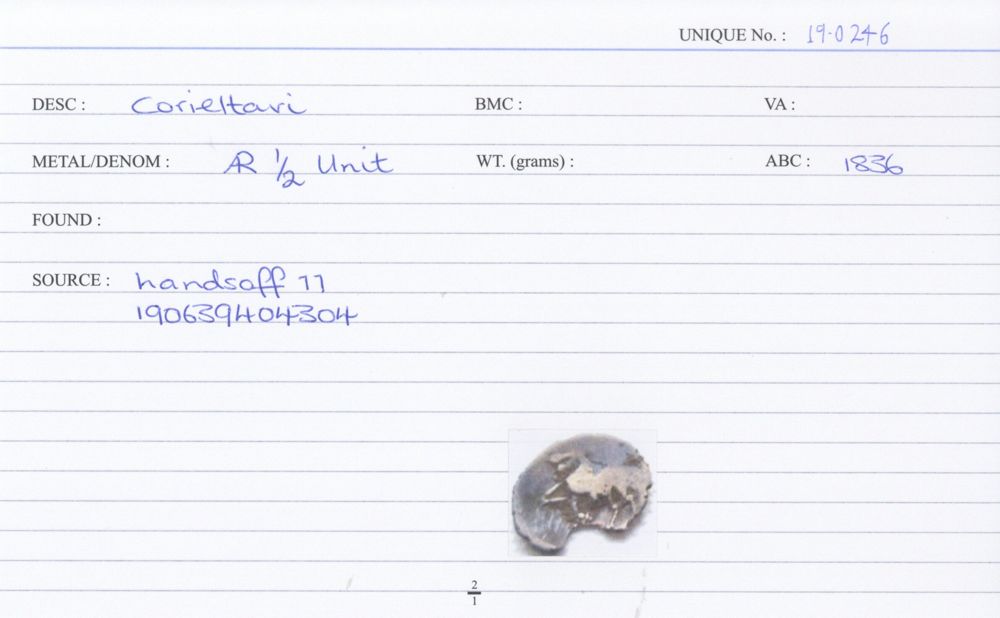 UNIQUE No. : 19.0246
DESC : Corieltavi BMC : VA :
METAL/DENOM : AR ½ Unit WT. (grams) : ABC : 1836
FOUND :
SOURCE : handsoff 77
190639404304
2
1